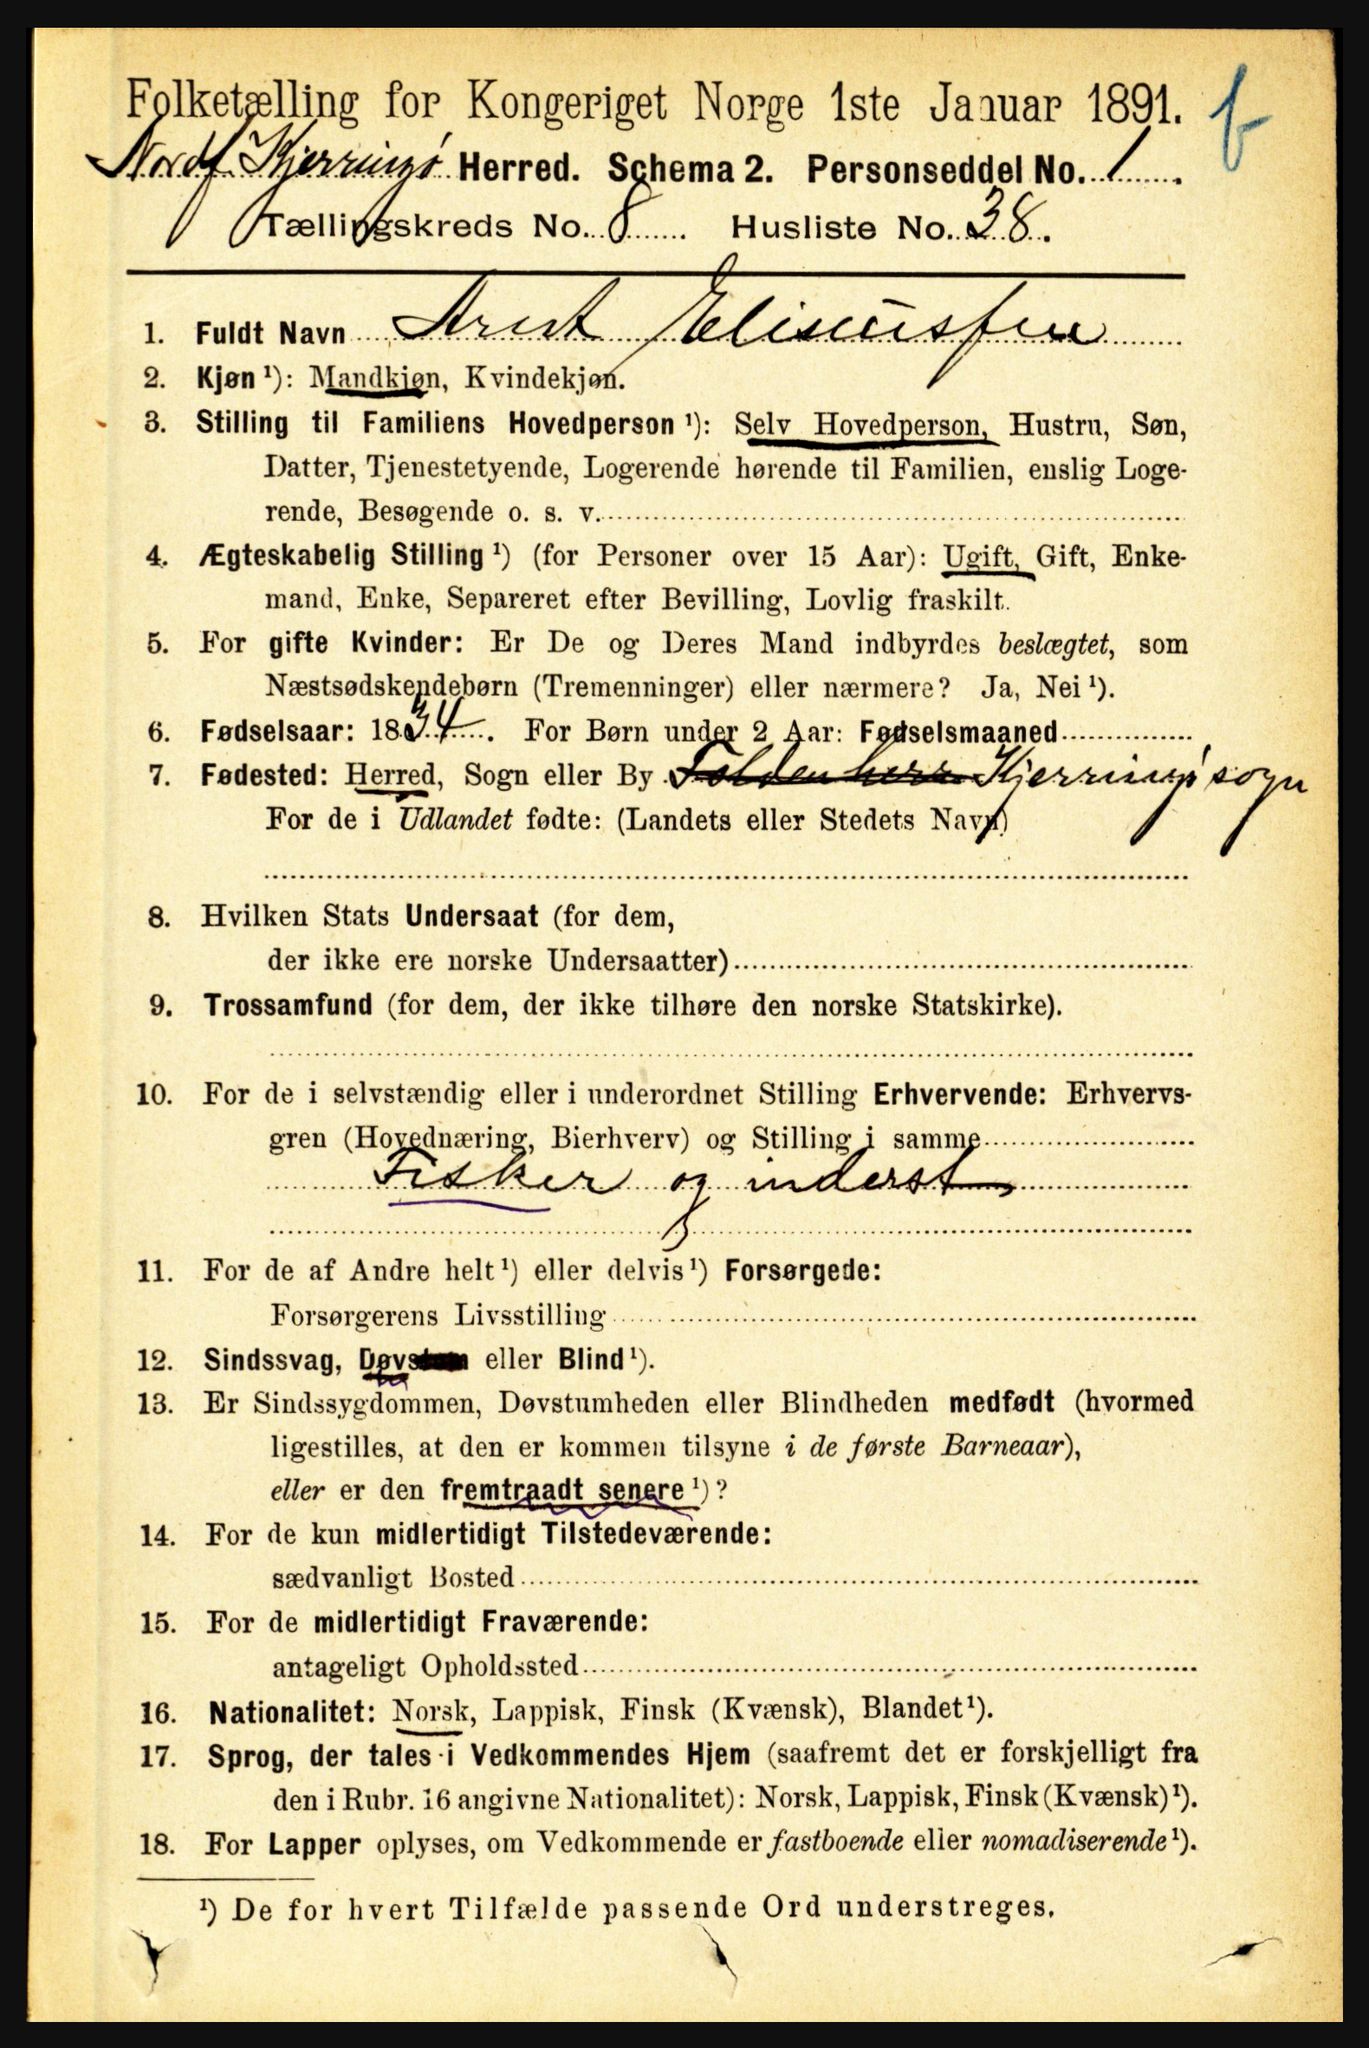 Folketælling for Kongeriget Norge 1ste Januar 1891.
Nordf. Kjerringø Herred. Schema 2. Personseddel No. 1.
Tællingskreds No. 8. Husliste No. 38.
1. Fuldt Navn Arnt Eliseusen
2. Kjøn ¹): Mandkjøn, Kvindekjøn.
3. Stilling til Familiens Hovedperson ¹): Selv Hovedperson, Hustru, Søn,
Datter, Tjenestetyende, Logerende hørende til Familien, enslig Loge-
rende, Besøgende o. s. v.
4. Ægteskabelig Stilling ¹) (for Personer over 15 Aar): Ugift, Gift, Enke-
mand, Enke, Separeret efter Bevilling, Lovlig fraskilt.
5. For gifte Kvinder: Er De og Deres Mand indbyrdes beslægtet, som
Næstsødskendebørn (Tremenninger) eller nærmere? Ja, Nei ¹).
6. Fødselsaar: 1834. For Børn under 2 Aar: Fødselsmaaned
7. Fødested: Herred, Sogn eller By Folden herr Kjerringø sogn
For de i Udlandet fødte: (Landets eller Stedets Navn)
8. Hvilken Stats Undersaat (for dem,
der ikke ere norske Undersaatter)
9. Trossamfund (for dem, der ikke tilhøre den norske Statskirke).
10. For de i selvstændig eller i underordnet Stilling Erhvervende: Erhvervs-
gren (Hovednæring, Bierhverv) og Stilling i samme
Fisker og inderst
11. For de af Andre helt ¹) eller delvis ¹) Forsørgede:
Forsørgerens Livsstilling
12. Sindssvag, Døvstum eller Blind ¹).
13. Er Sindssygdommen, Døvstumheden eller Blindheden medfødt (hvormed
ligestilles, at den er kommen tilsyne i de første Barneaar),
eller er den fremtraadt senere ¹)?
14. For de kun midlertidigt Tilstedeværende:
sædvanligt Bosted
15. For de midlertidigt Fraværende:
antageligt Opholdssted
16. Nationalitet: Norsk, Lappisk, Finsk (Kvænsk), Blandet ¹).
17. Sprog, der tales i Vedkommendes Hjem (saafremt det er forskjelligt fra
den i Rubr. 16 angivne Nationalitet): Norsk, Lappisk, Finsk (Kvænsk) ¹).
18. For Lapper oplyses, om Vedkommende er fastboende eller nomadiserende ¹).
¹) De for hvert Tilfælde passende Ord understreges.